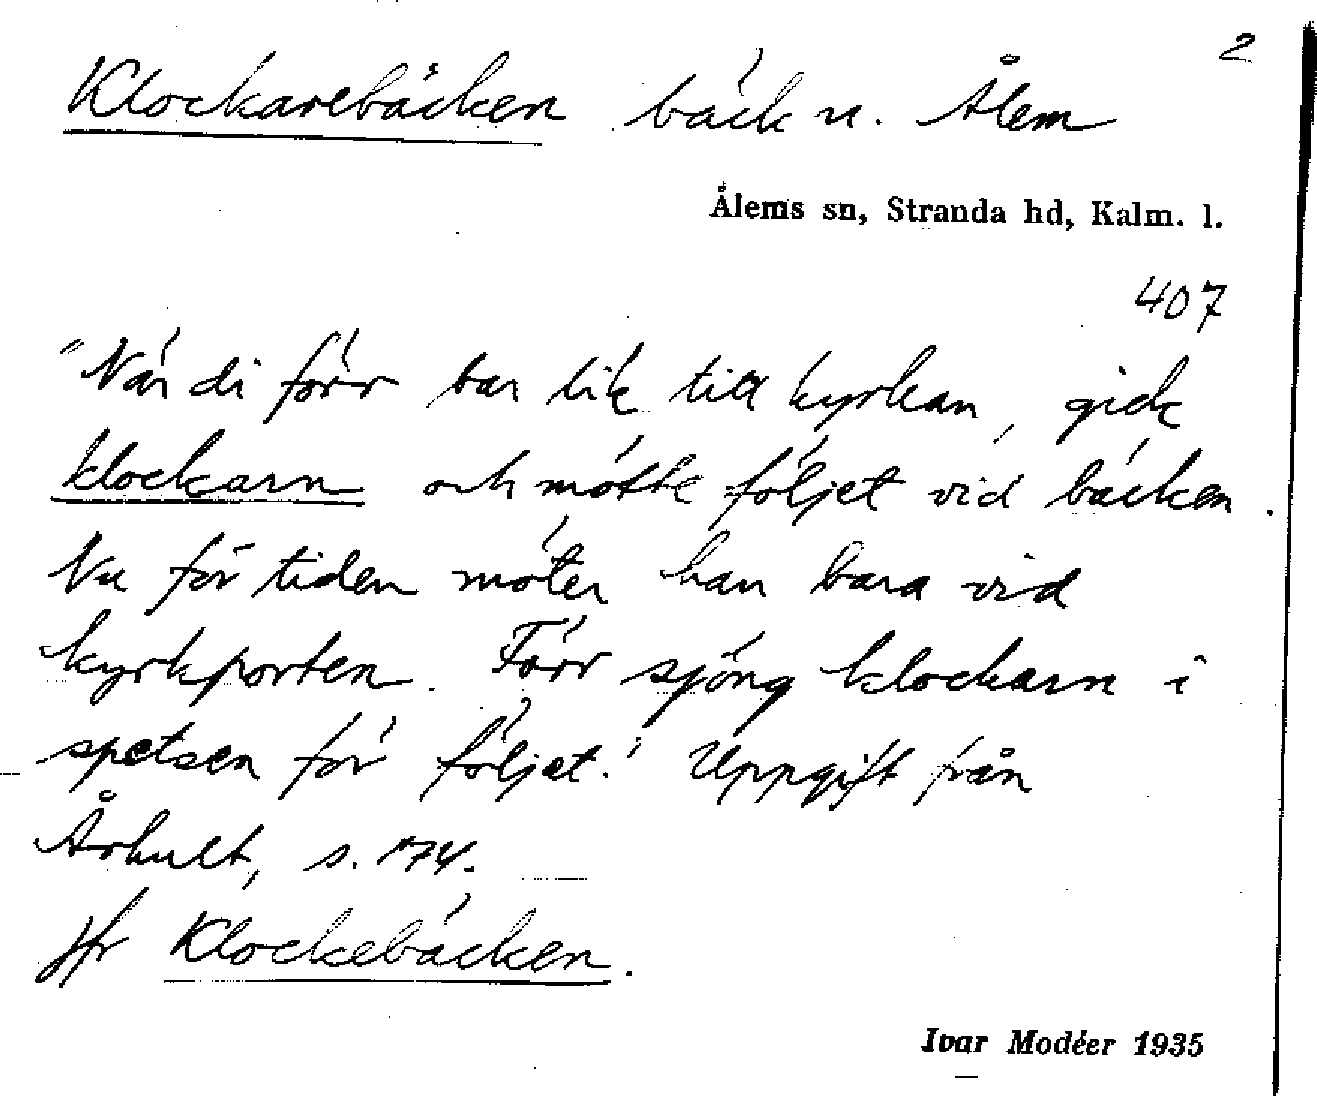 2
Klockarebäcken bäck n. Ålem
Ålems sn, Stranda hd, Kalm. l.
407
"När di förr bar lik till kyrkan, gick
klockarn och mötte följet vid bäcken.
Nu för tiden möter han bara vid
kyrkporten. Förr sjöng klockarn i
spetsen för följet." Uppgift från
Århult, s. 174.
Jfr Klockebäcken.
Ivar Modéer 1935